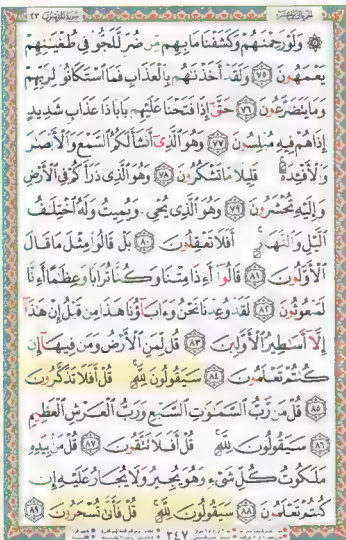 ۞ وَلَوْ رَحِمْنَٰهُمْ وَكَشَفْنَا مَا بِهِم مِّن ضُرٍّ لَّلَجُّوا۟ فِى طُغْيَٰنِهِمْ
يَعْمَهُونَ ﴿٧٥﴾ وَلَقَدْ أَخَذْنَٰهُم بِٱلْعَذَابِ فَمَا ٱسْتَكَانُوا۟ لِرَبِّهِمْ
وَمَا يَتَضَرَّعُونَ ﴿٧٦﴾ حَتَّىٰٓ إِذَا فَتَحْنَا عَلَيْهِم بَابًا ذَا عَذَابٍ شَدِيدٍ
إِذَا هُمْ فِيهِ مُبْلِسُونَ ﴿٧٧﴾ وَهُوَ ٱلَّذِىٓ أَنشَأَ لَكُمُ ٱلسَّمْعَ وَٱلْأَبْصَٰرَ
وَٱلْأَفْـِٔدَةَ ۚ قَلِيلًا مَّا تَشْكُرُونَ ﴿٧٨﴾ وَهُوَ ٱلَّذِى ذَرَأَكُمْ فِى ٱلْأَرْضِ
وَإِلَيْهِ تُحْشَرُونَ ﴿٧٩﴾ وَهُوَ ٱلَّذِى يُحْىِۦ وَيُمِيتُ وَلَهُ ٱخْتِلَٰفُ
ٱلَّيْلِ وَٱلنَّهَارِ ۚ أَفَلَا تَعْقِلُونَ ﴿٨٠﴾ بَلْ قَالُوا۟ مِثْلَ مَا قَالَ
ٱلْأَوَّلُونَ ﴿٨١﴾ قَالُوٓا۟ أَءِذَا مِتْنَا وَكُنَّا تُرَابًا وَعِظَٰمًا أَءِنَّا
لَمَبْعُوثُونَ ﴿٨٢﴾ لَقَدْ وُعِدْنَا نَحْنُ وَءَابَآؤُنَا هَٰذَا مِن قَبْلُ إِنْ هَٰذَآ
إِلَّآ أَسَٰطِيرُ ٱلْأَوَّلِينَ ﴿٨٣﴾ قُل لِّمَنِ ٱلْأَرْضُ وَمَن فِيهَآ إِن
كُنتُمْ تَعْلَمُونَ ﴿٨٤﴾ سَيَقُولُونَ لِلَّهِ ۚ قُلْ أَفَلَا تَذَكَّرُونَ
﴿٨٥﴾ قُلْ مَن رَّبُّ ٱلسَّمَٰوَٰتِ ٱلسَّبْعِ وَرَبُّ ٱلْعَرْشِ ٱلْعَظِيمِ
﴿٨٦﴾ سَيَقُولُونَ لِلَّهِ ۚ قُلْ أَفَلَا تَتَّقُونَ ﴿٨٧﴾ قُلْ مَنۢ بِيَدِهِۦ
مَلَكُوتُ كُلِّ شَىْءٍ وَهُوَ يُجِيرُ وَلَا يُجَارُ عَلَيْهِ إِن
كُنتُمْ تَعْلَمُونَ ﴿٨٨﴾ سَيَقُولُونَ لِلَّهِ ۚ قُلْ فَأَنَّىٰ تُسْحَرُونَ ﴿٨٩﴾
٣٤٧